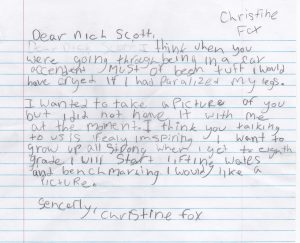 Christine
Fox
Dear Nich Scott,
I think when you
were going through being in a car
accendent, Must of been tuff I would
have cryed if I had Paralized my legs.
I wanted to take a Picture of you
but I did not have it with me
at the moment. I think you talking
to us is Realy inspiring. I want to
grow up all Strong when I get to eighth
grade I will Start lifting wates
and benchmarking I would like a
Picture.
Sencerly,
Christine Fox